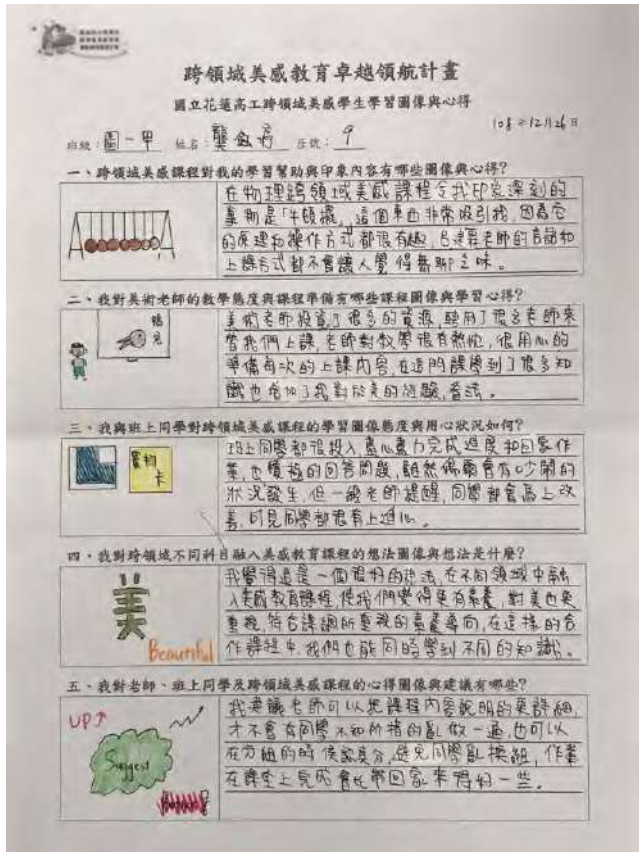 跨領域美感教育卓越領航計畫
國立花蓮高工跨領域美感學生學習圖像與心得
108年12月26日
班級：圖一甲 姓名：龔 座號：9
一、跨領域美感課程對我的學習幫助與印象內容有哪些圖像與心得?
在物理跨領域美感課程令我印象深刻的
是「牛頓擺」，這個東西非常吸引我，因為它
的原理和操作方式都很有趣，呂建霖老師的言語和
上課方式都不會讓人覺得無聊乏味。
二、我對美術老師的教學態度與課程準備有哪些課程圖像與學習心得?
鴨
兔
美術老師投資了很多的資源，聘用了很多老師來
替我們上課，老師對教學很有熱忱，很用心的
準備每次的上課內容，在這門課學到了很多知
識也增加了我對於美的經驗，看法。
三、我與班上同學對跨領域美感課程的學習圖像態度與用心狀況如何?
置物
卡
班上同學都很投入，盡心盡力完成進度和回家作
業，也積極的回答問題，雖然偶爾會有吵鬧的
狀況發生，但一經老師提醒，同學都會馬上改
善，可見同學都很有上進心。
四、我對跨領域不同科目融入美感教育課程的想法圖像與想法是什麼?
美
Beautiful
我覺得這是一個很好的想法，在不同領域中融
入美感教育課程，使我們變得更有素養，對美也更
重視，符合課綱所重視的素養導向，在這樣的合
作課程中，我們也能同時學到不同的知識。
五、我對老師、班上同學及跨領域美感課程的心得圖像與建議有哪些?
UP↑
Suggest
我建議老師可以把課程內容說明的更詳細，
才不會有同學不知所措的亂做一通，也可以
在分組的時候認真分，避免同學亂換組，作業
在課堂上完成會比帶回家來得好一些。